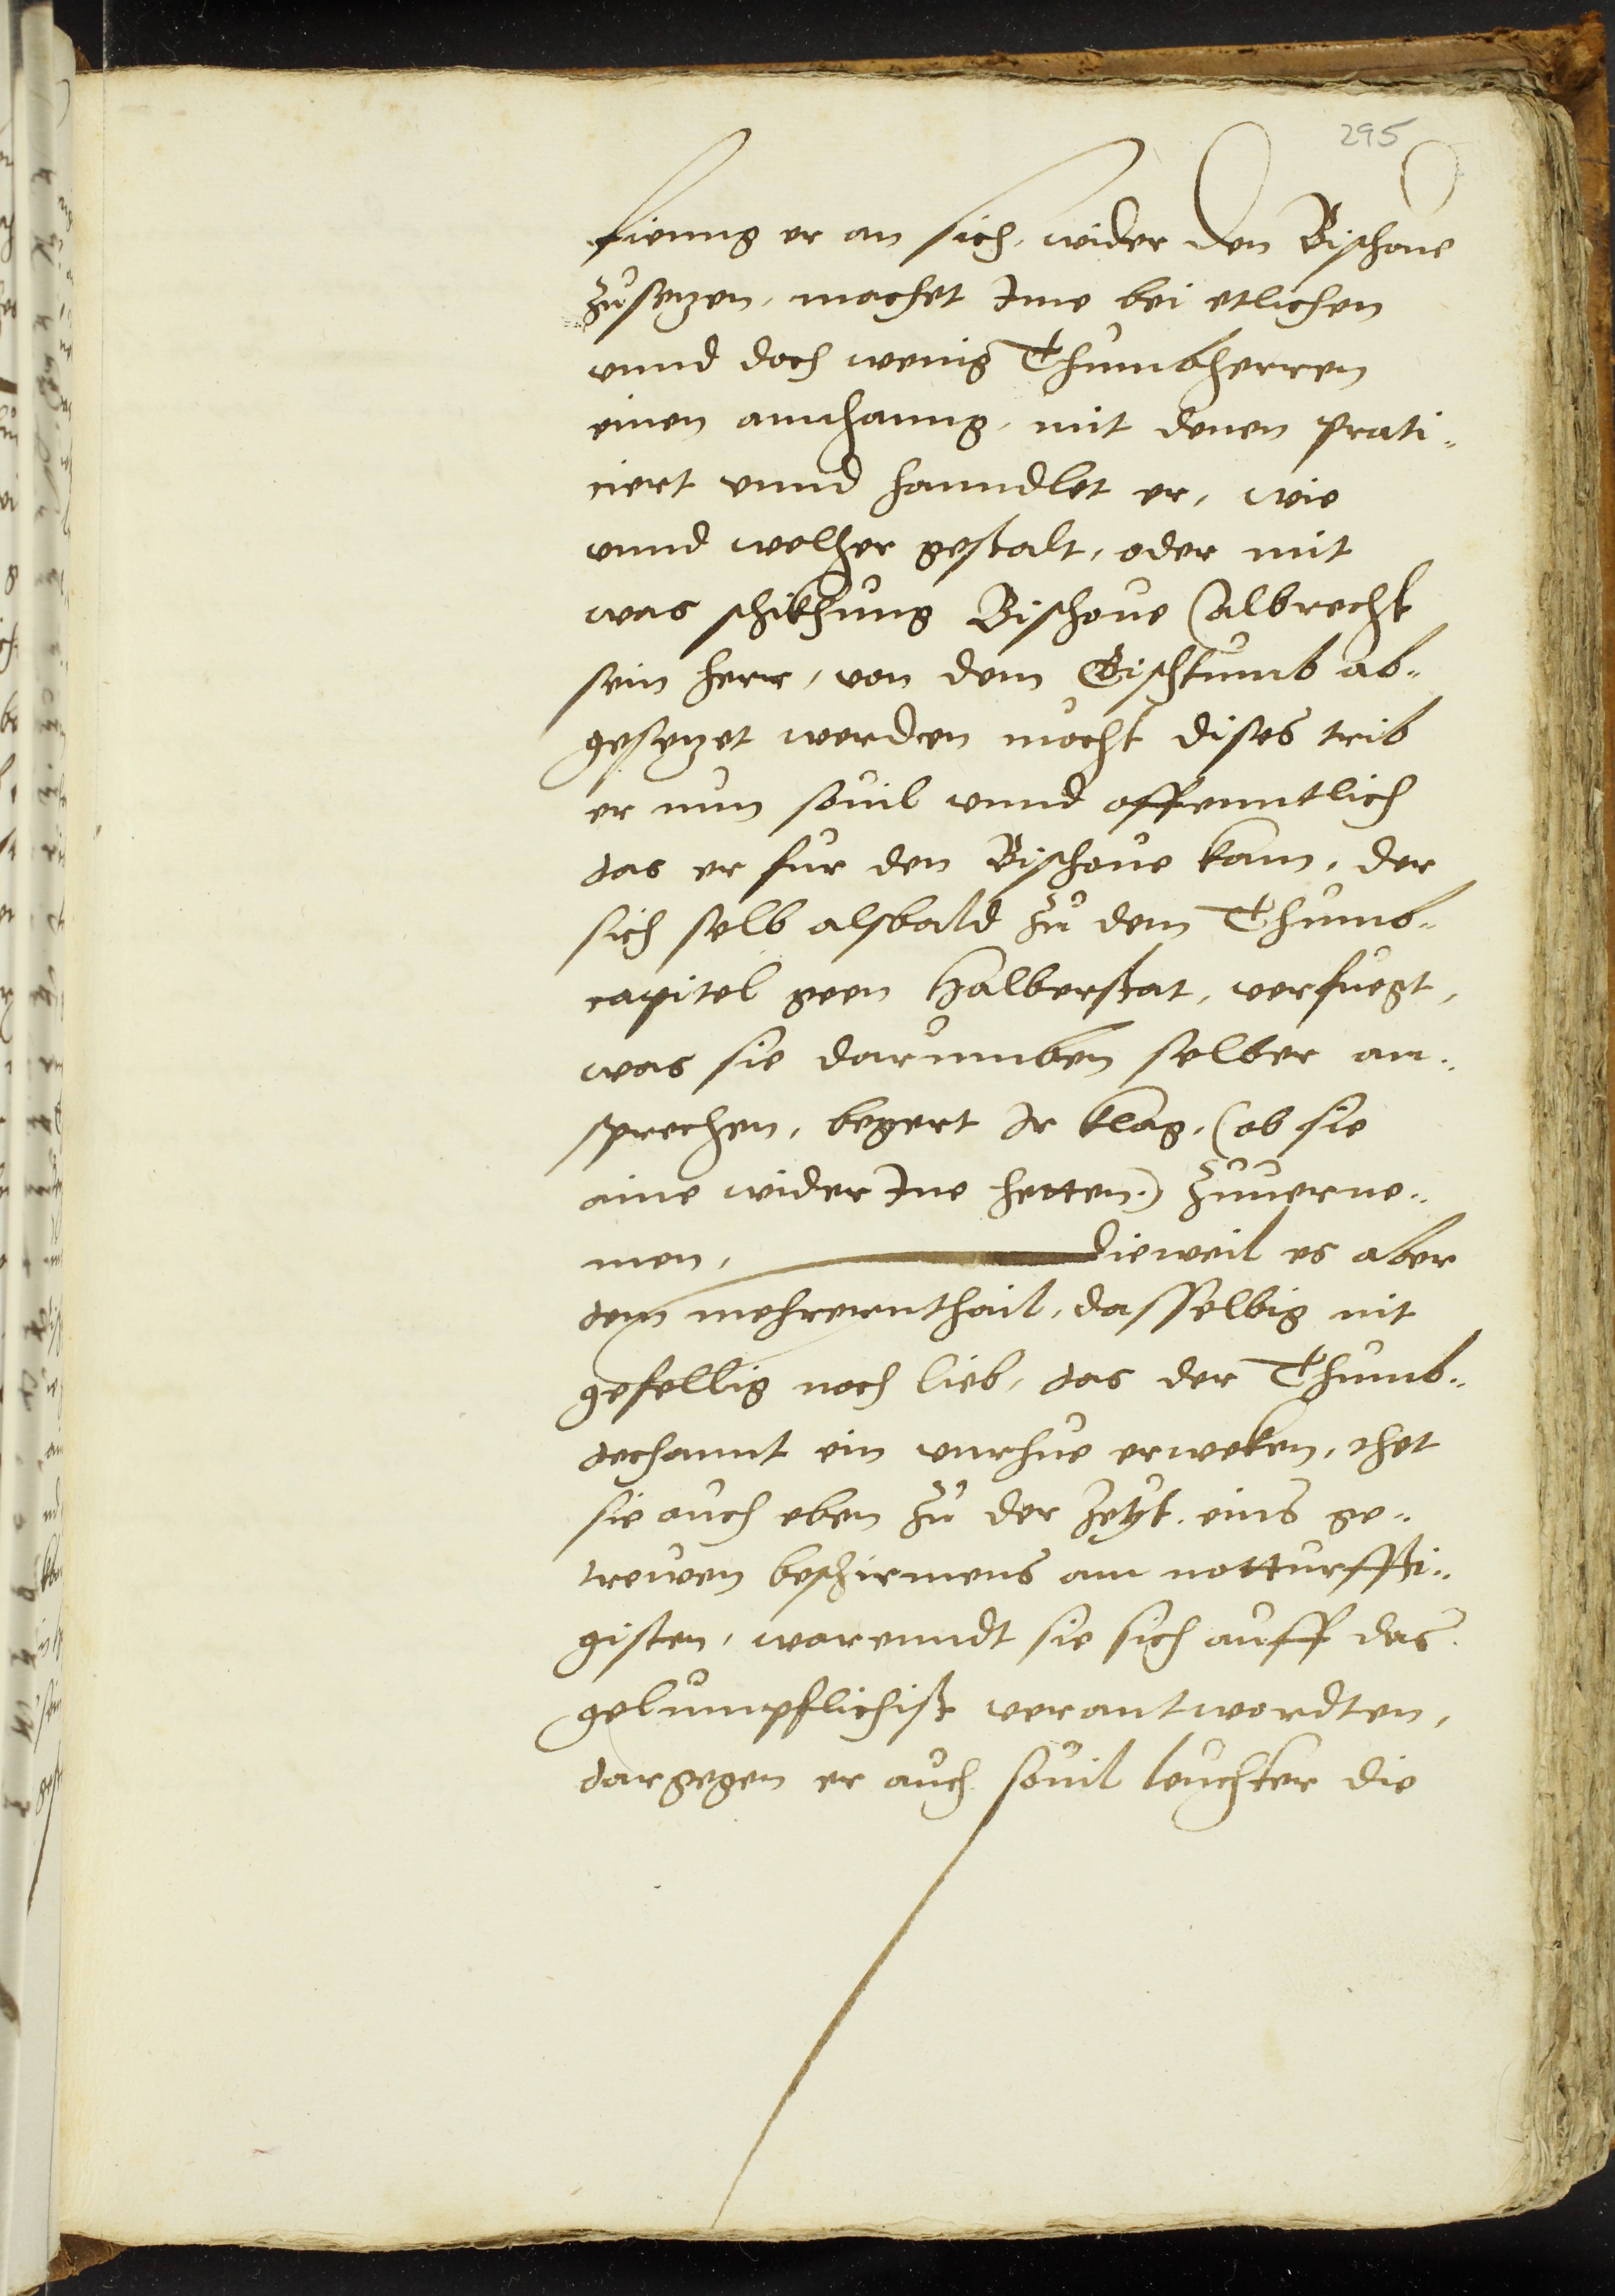 295
fienng er an sich, wider den Bischoue
zusetzen, machet Ime bei etlichen
vnnd doch wenig Thumbherren
einen annhanng, mit denen prati-
ciert vnnd hanndlet er, wie
vnnd welher gestalt, oder mit
was schikhung Bischoue Albrecht
sein herr, von dem Bisthumb ab-
gesetzet werden mocht dises trib
er nun souil vnnd offenntlich
das er fur den Bischoue kam, der
sich selb alsbald zu dem Thumb-
capitel geen Halberstat, verfuegt,
was sie darumben selber an-
sprechen, begert Ir klag, (ob sie
aine wider Ine hetten) zuuerne-
men, dieweil es aber
dem mehrernthail, dasselbig nit
gefellig noch lieb, das der Thumb-
dechannt ein vnrhue erweken, thet
sie auch eben zu der Zeyt, eins ge-
trewen beschirmens am notturffti-
gisten, warenndt sie sich auff das
gelumpflichist verantwordten,
dargegen er auch souil leuchter die